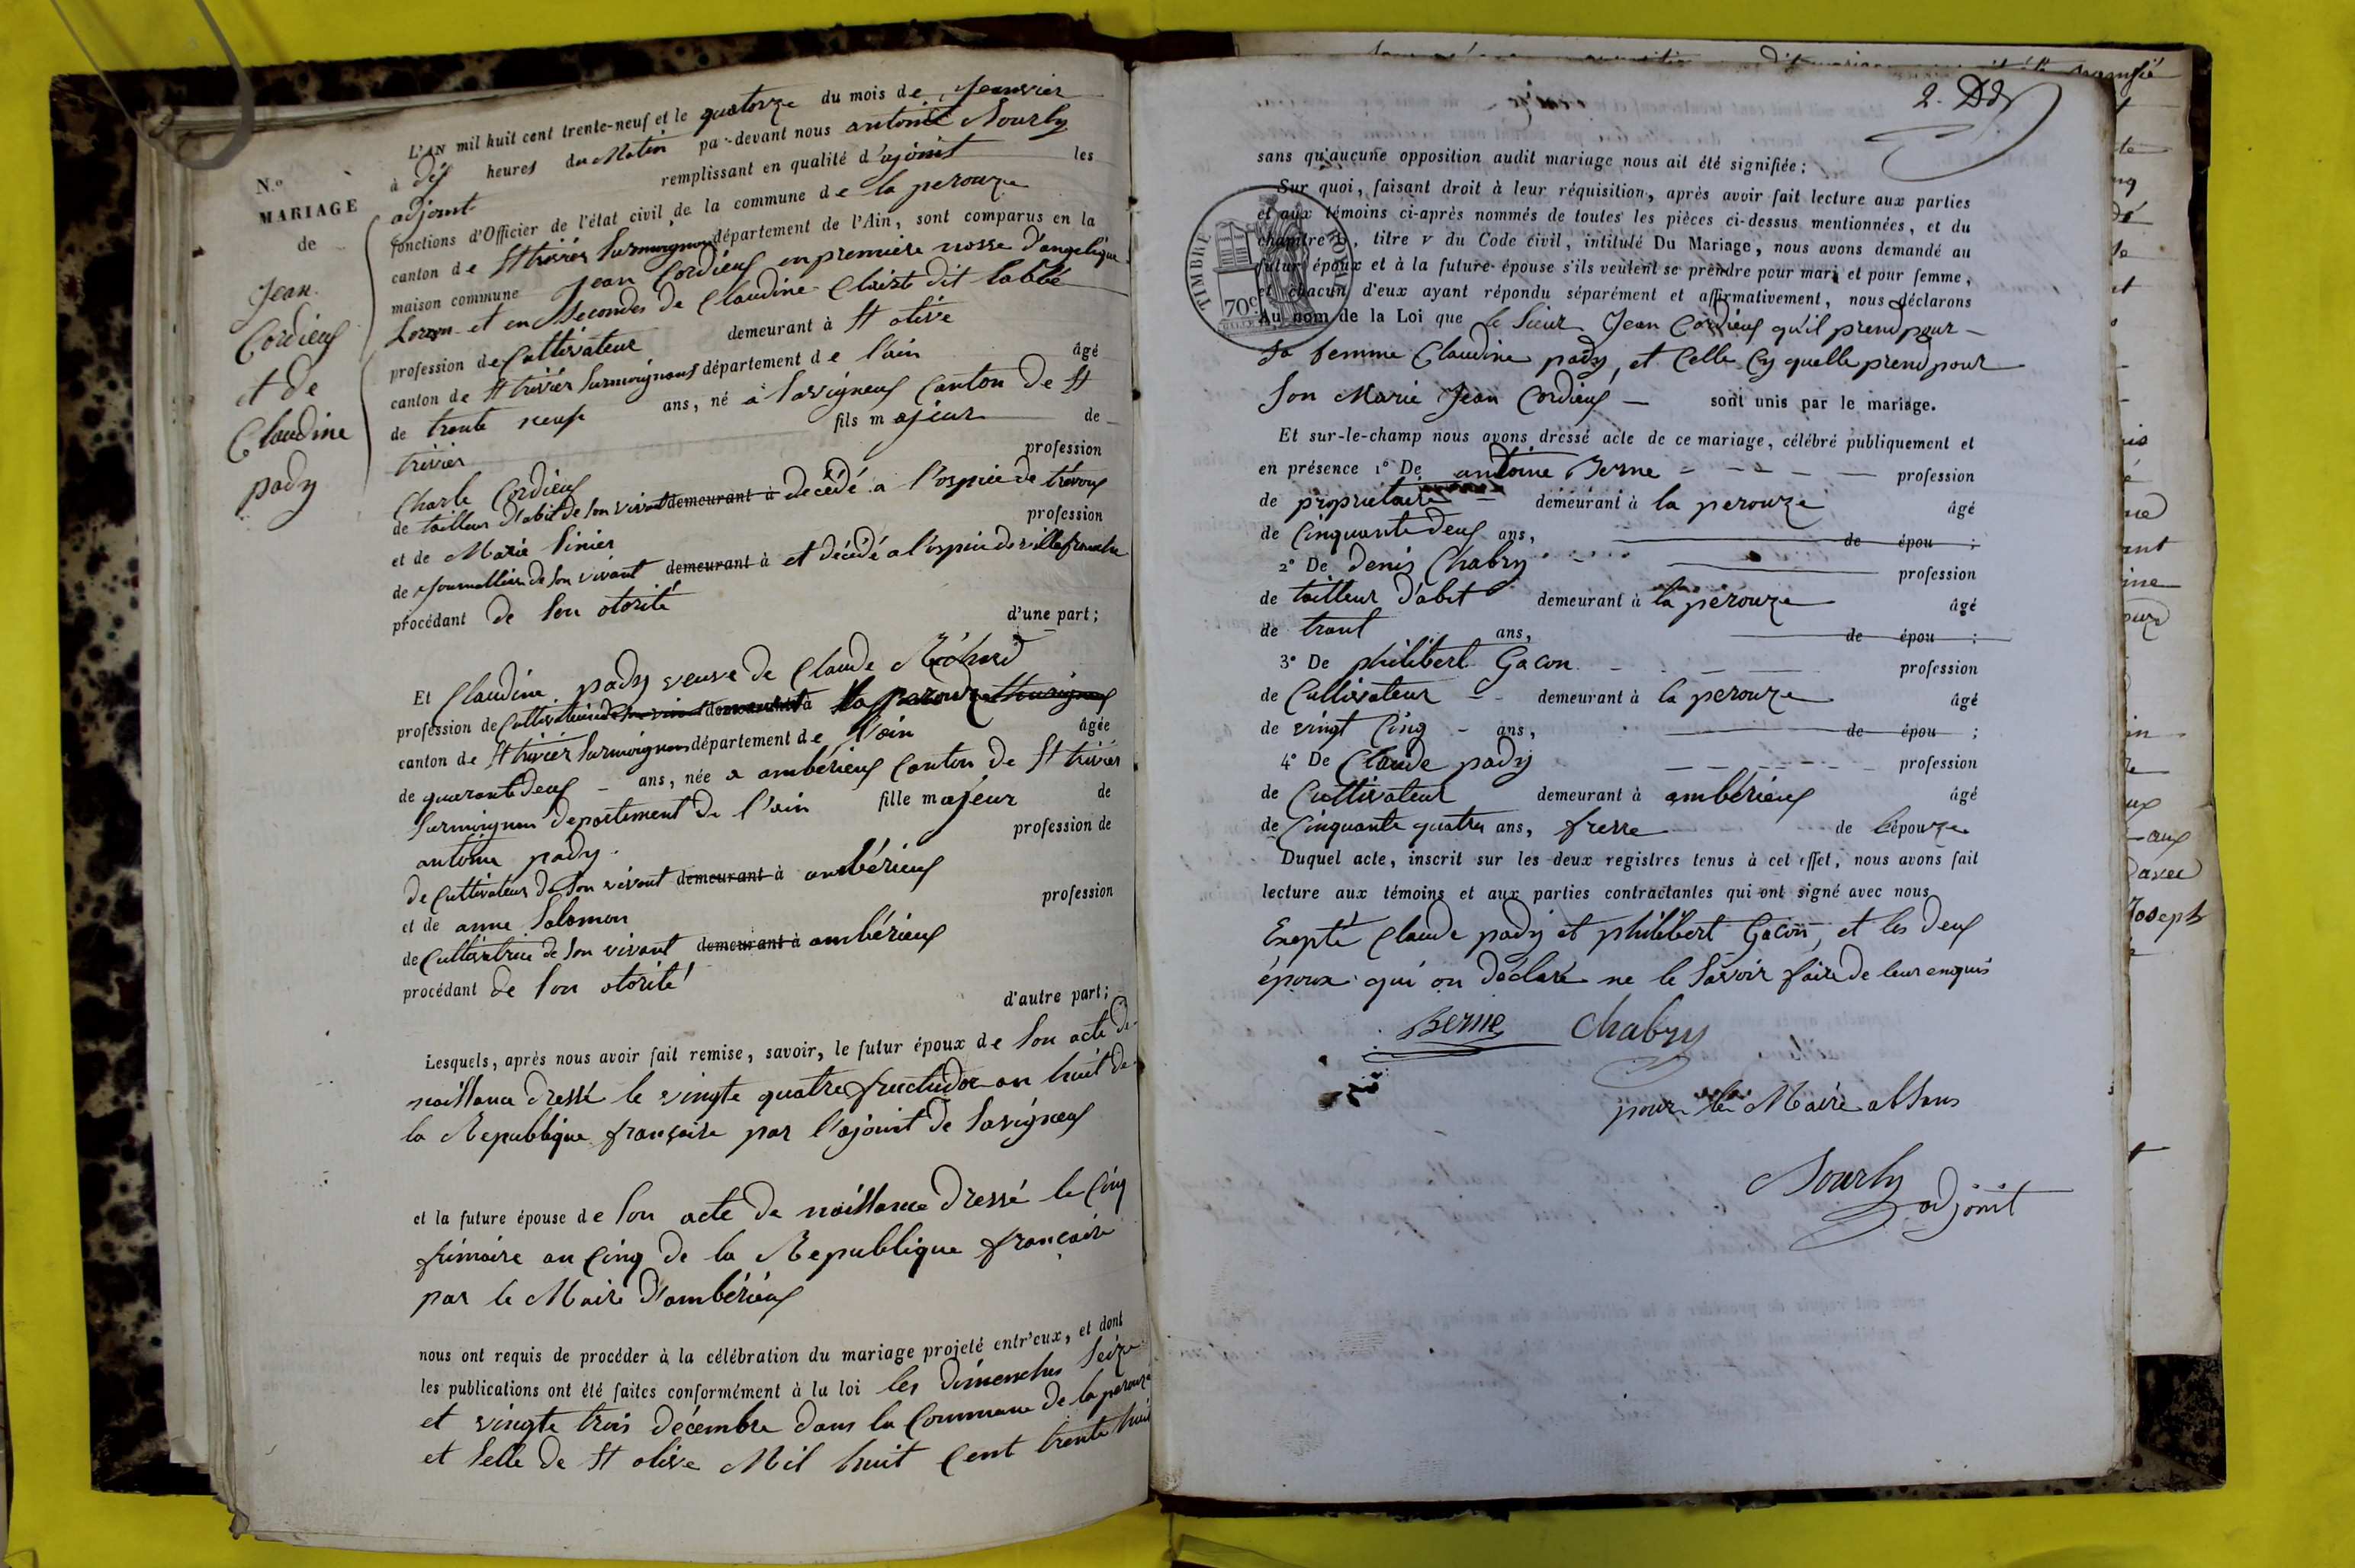 N.o
MARIAGE
de
Jean
Cordieux
et de
Claudine
pady
L'AN mil huit cent trente-neuf et le quatorze du mois de Jeanvier
à dix heures du Matin par-devant nous antoine Sourly
adjoint remplissant en qualité d'ajoint les
fonctions d'Officier de l'état civil de la commune de la perouze
canton de St trivier Surmoignans département de l'Ain, sont comparus en la
maison commune Jean Cordieux en premiere nosse d'angelique
et en Secondes de Claudine dit labbé
profession de Cultivateur demeurant à St olive
canton de St trivier Surmoignans département de l'ain âgé
de trente neuf ans, né à Savigneux Canton de St
trivier fils majeur de
Charle Cordieux profession
de tailleur d'abit de Son vivant demeurant à décédé a l'ospice de trevoux
et de Marie Sinier profession
de Journallière de Son vivant demeurant à et décédé a l'ospice de villefranche
procédant de Son otorité
d'une part;
Et Claudine pady veuve de Claude Richard
profession de Cultivatrice demeurant à la perouze
canton de St trivier Surmoignans département de l'ain âgée
de quarante deux ans, née a ambérieux Canton de St trivier
Surmoignans departement de l'ain fille majeur de
antoine pady profession de
de Cultivateur de Son vivant demeurant à ambérieux
et de anne Salomon profession
de Cultivatrice de Son vivant demeurant à ambérieux
procédant de Son otorité
d'autre part;
Lesquels, après nous avoir fait remise, savoir, le futur époux de Son acte de
naissance dressé le vingte quatre fructidor an huit de
la Republique française par l'ajoint de Savigneux
et la future épouse de Son acte de naissance dressé le Cinq
frimaire an Cinq de la Republique françaire
par le Maire d'ambérieux
nous ont requis de procéder à la célébration du mariage projeté entr'eux, et dont
les publications ont été faites conformément à la loi les dimenches Seize
et vingte trois décembre dans la Commune de la perouze
et Selle de St olive Mil huit Cent trente huit
2.
sans qu'aucune opposition audit mariage nous ait été signifiée;
Sur quoi, faisant droit à leur réquisition, après avoir fait lecture aux parties
et aux témoins ci-après nommés de toutes les pièces ci-dessus mentionnées, et du
chapitre 6, titre v du Code civil, intitulé Du Mariage, nous avons demandé au
futur époux et à la future épouse s'ils veulent se prendre pour mari et pour femme,
et chacun d'eux ayant répondu séparément et affirmativement, nous déclarons
Au nom de la Loi que le Sieur Jean Cordieux qu'il prend pour
Sa femme Claudine pady, et Celle Cy quelle prend pour
Son Marie Jean Cordieux sont unis par le mariage.
TIMBRE ROYAL
70c
Et sur-le-champ nous avons dressé acte de ce mariage, célébré publiquement et
en présence 1o De antoine Berne profession
de propriétaire demeurant à la perouze âgé
de Cinquante deux ans, de épou ;
2o De denis Chabry profession
de tailleur d'abit demeurant à la perouze âgé
de trant ans, de épou ;
3o De philibert Gacon profession
de Cultivateur demeurant à la perouze âgé
de vingt Cinq ans, de épou ;
4o De Claude pady profession
de Cultivateur demeurant à ambérieux âgé
de Cinquante quatre ans, frerre de l'épouze
Duquel acte, inscrit sur les deux registres tenus à cet effet, nous avons fait
lecture aux témoins et aux parties contractantes qui ont signé avec nous
Exepté Claude pady et philibert Gacon, et les deux
époux qui on déclaré ne le Savoir faire de leur enquis
Berne Chabry
pour le Maire absans
Sourly
adjoint